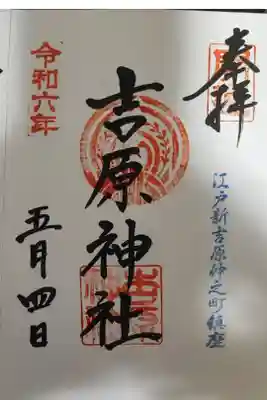 奉拝
江戸新吉原仲之町鎮座
吉原神社
令和六年
五月四日